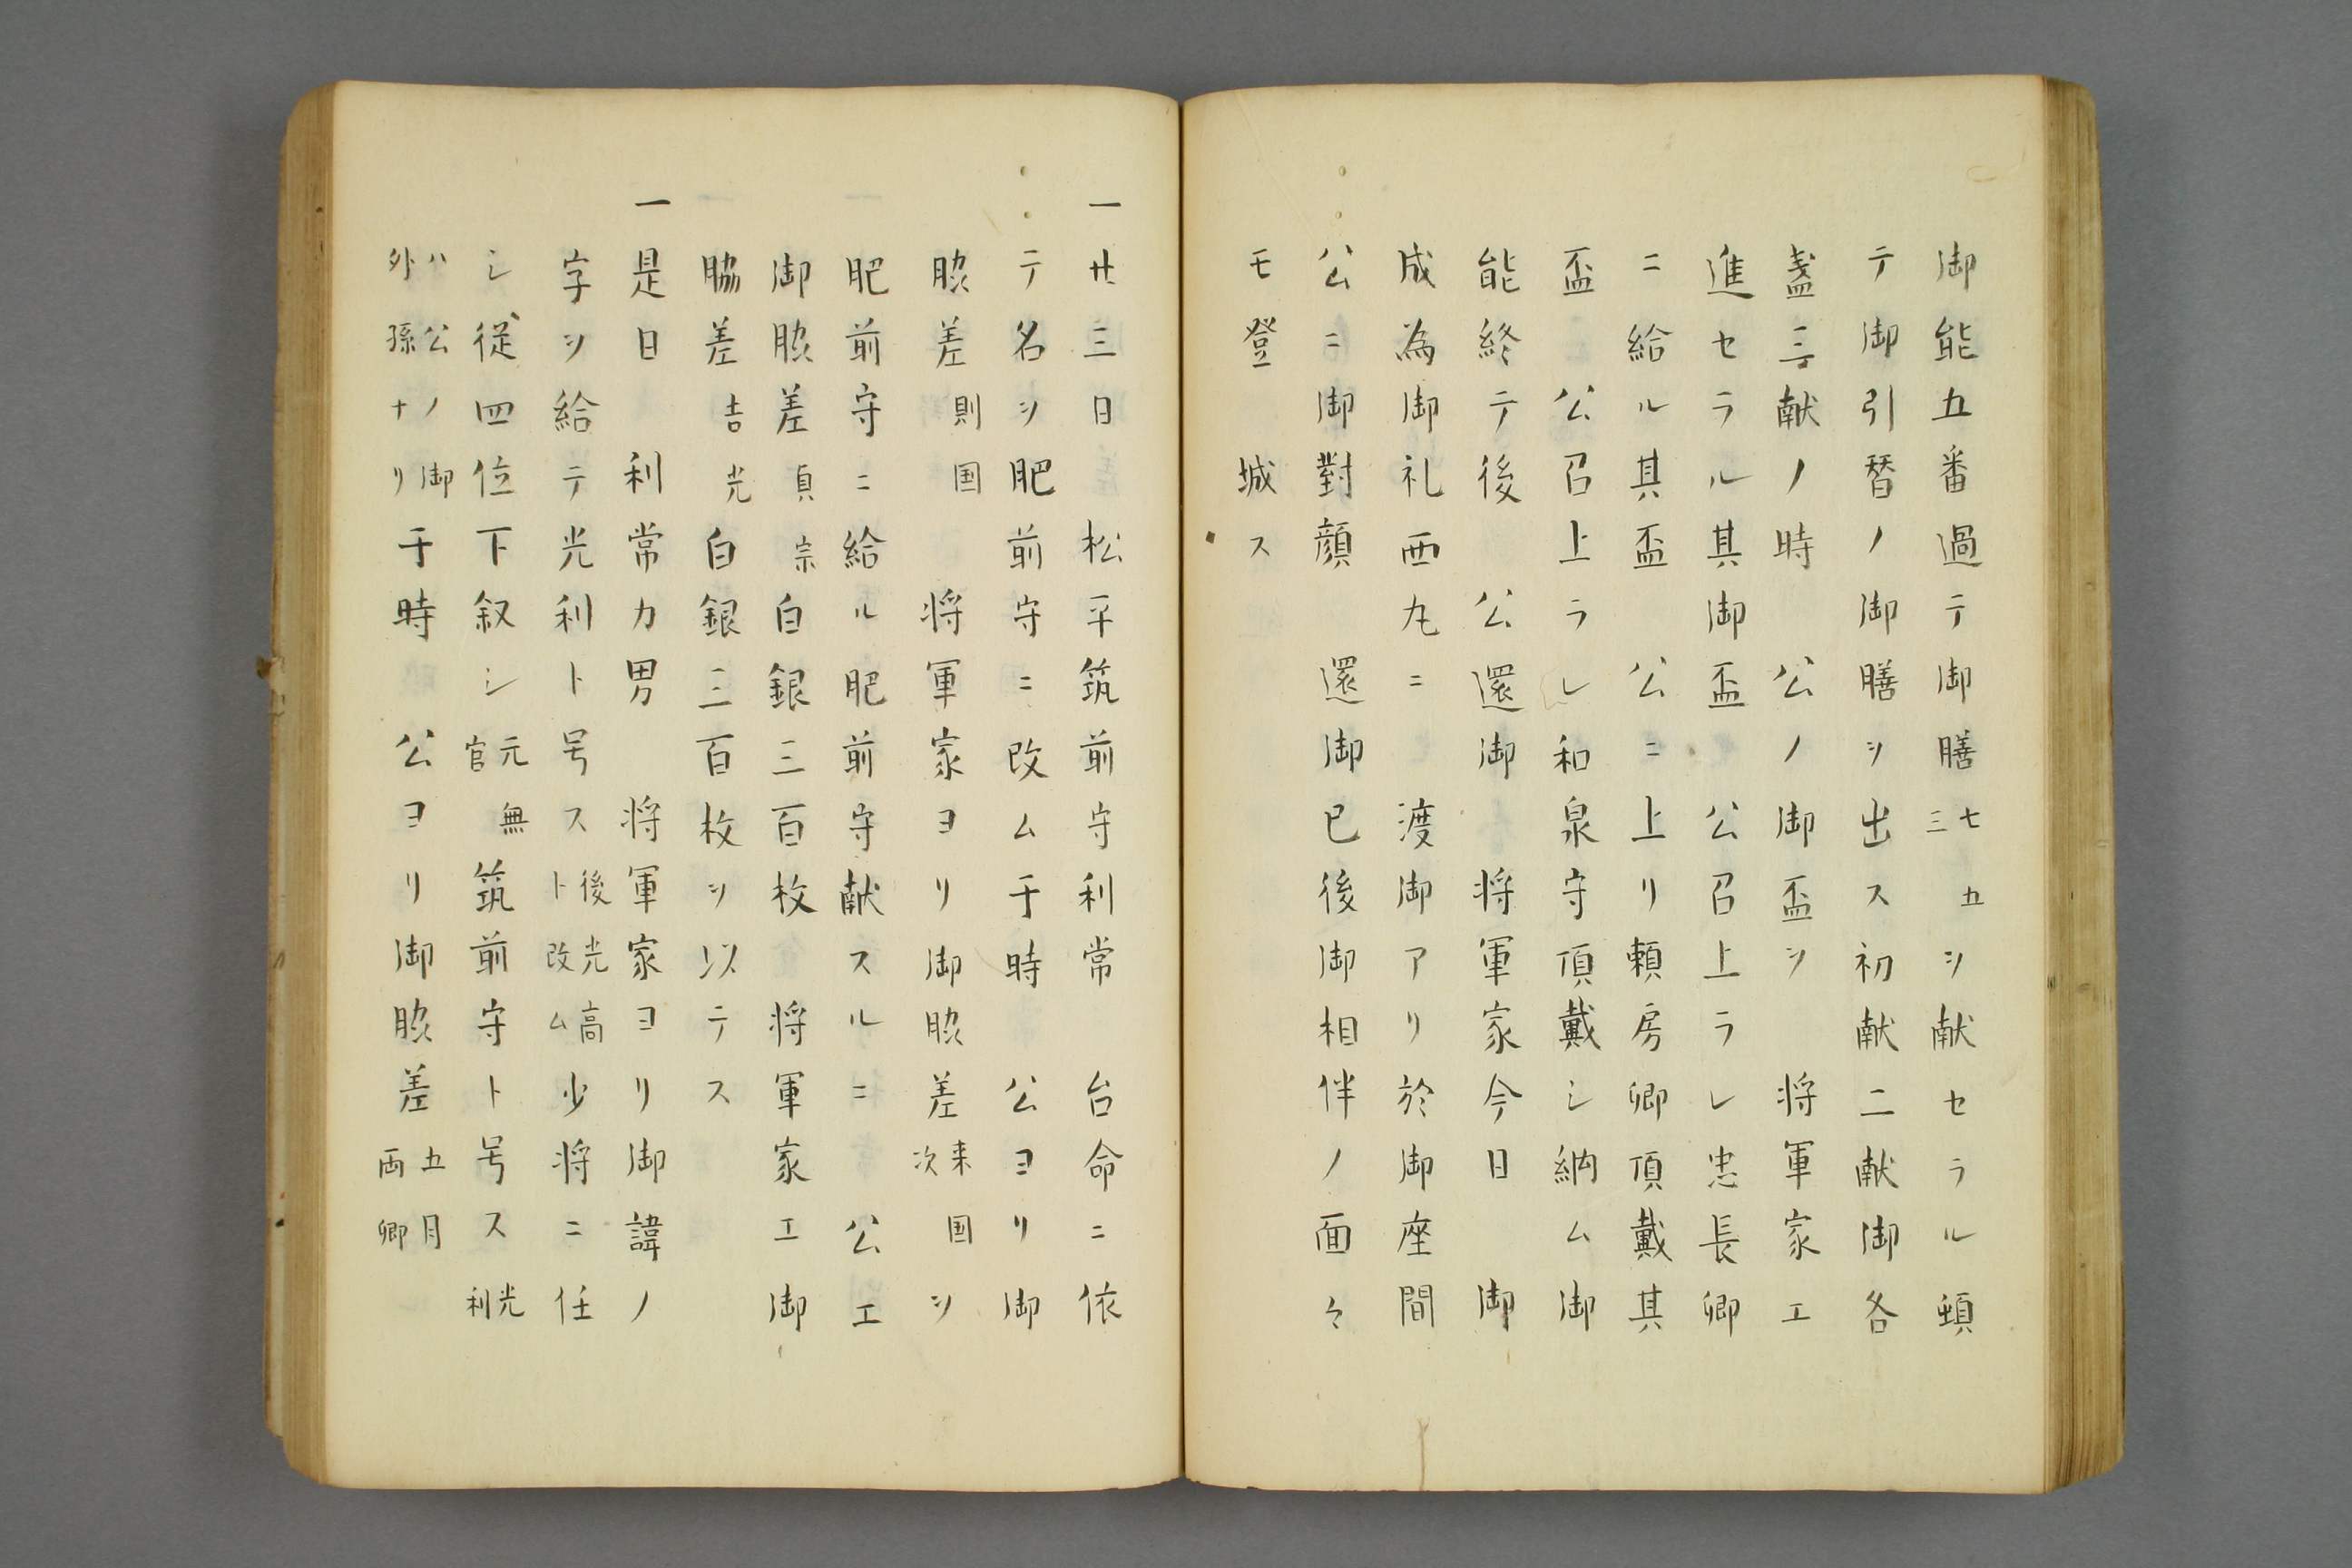 御能五番過テ御膳七五三ヲ献セラル頓
テ御引替ノ御膳ヲ出ス初献二献御各
盞三献ノ時　公ノ御盃ヲ　将軍家エ
進セラル其御盃　公召上ラレ忠長卿
ニ給ル其盃　公ニ上リ頼房卿頂戴其
盃　公召上ラレ和泉守頂戴シ納ム御
能終テ後　公還御　将軍家今日　御
成為御礼西丸ニ　渡御アリ於御座間
公ニ御對顔　還御已後御相伴ノ面々
モ登　城ス
一廿三日　松平筑前守利常　台命ニ依
テ名ヲ肥前守ニ改ム于時　公ヨリ御
脇差則国　将軍家ヨリ御脇差来国次ヲ
肥前守ニ給ル肥前守献スルニ　公エ
御脇差貞宗白銀三百枚　将軍家エ御
脇差吉光白銀三百枚ヲ以テス
一是日　利常カ男　将軍家ヨリ御諱ノ
字ヲ給テ光利ト号ス後光高ト改ム少将ニ任
シ従四位下叙シ元無官筑前守ト号ス光利
ハ公ノ御外孫ナリ于時　公ヨリ御脇差五月両卿